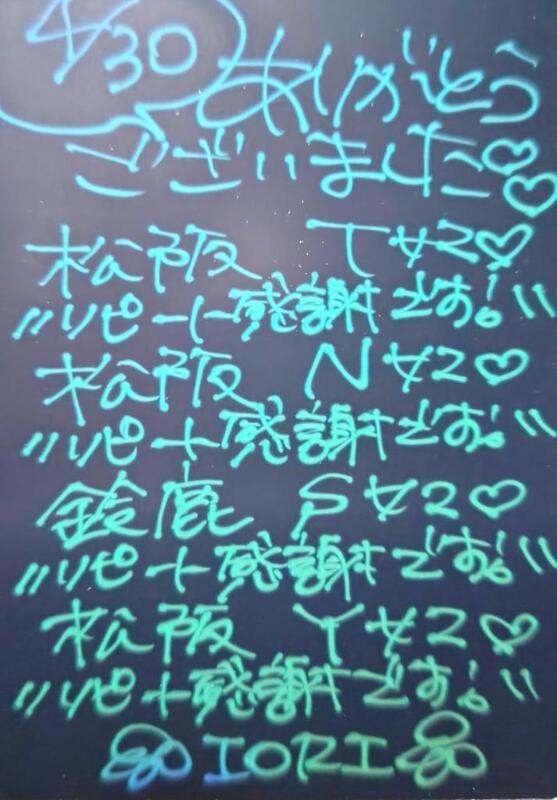 4/30 ありがとう
ございました♡♡
松阪 Tサン♡
〃リピート感謝です!〃
松阪 Nサン♡
〃リピート感謝です!〃
鈴鹿 Sサン♡
〃リピート感謝です!〃
松阪 Yサン♡
〃リピート感謝です!〃
IORI